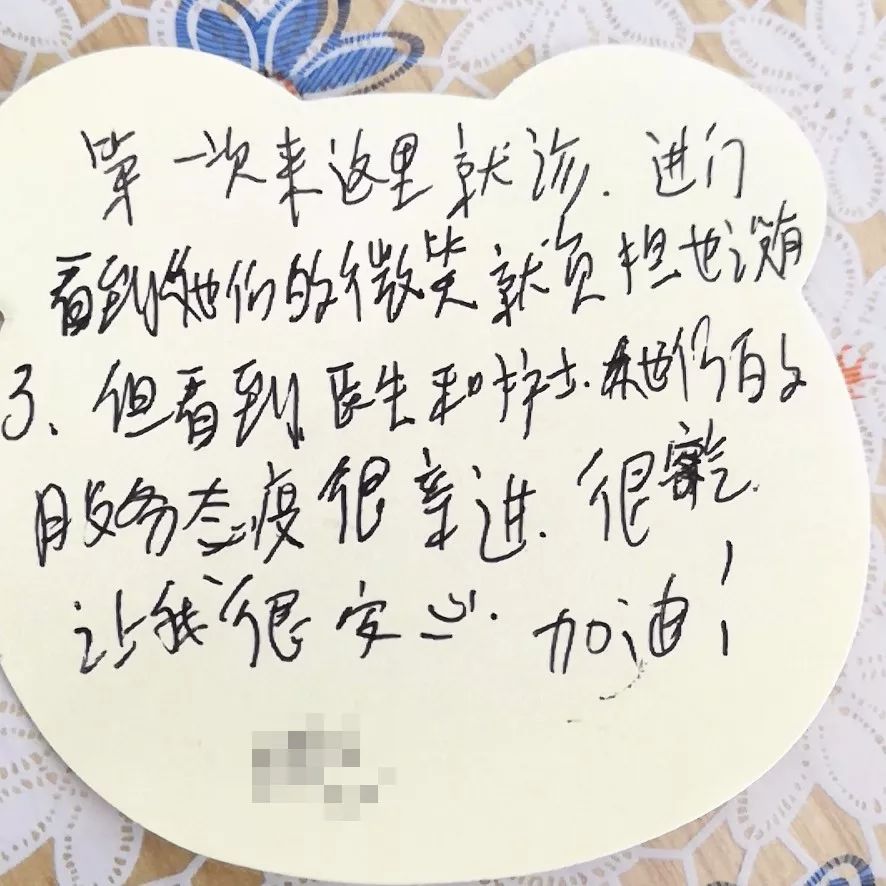 第一次来这里就诊.进门
看到她们的微笑就负担也没有
了、但看到医生和护士.她们的
服务态度很亲进.很客气.
让我很安心.加油！